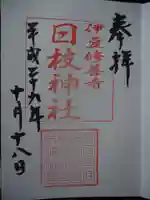 奉拝
伊豆修善寺
日枝神社
平成二十九年
十月十八日